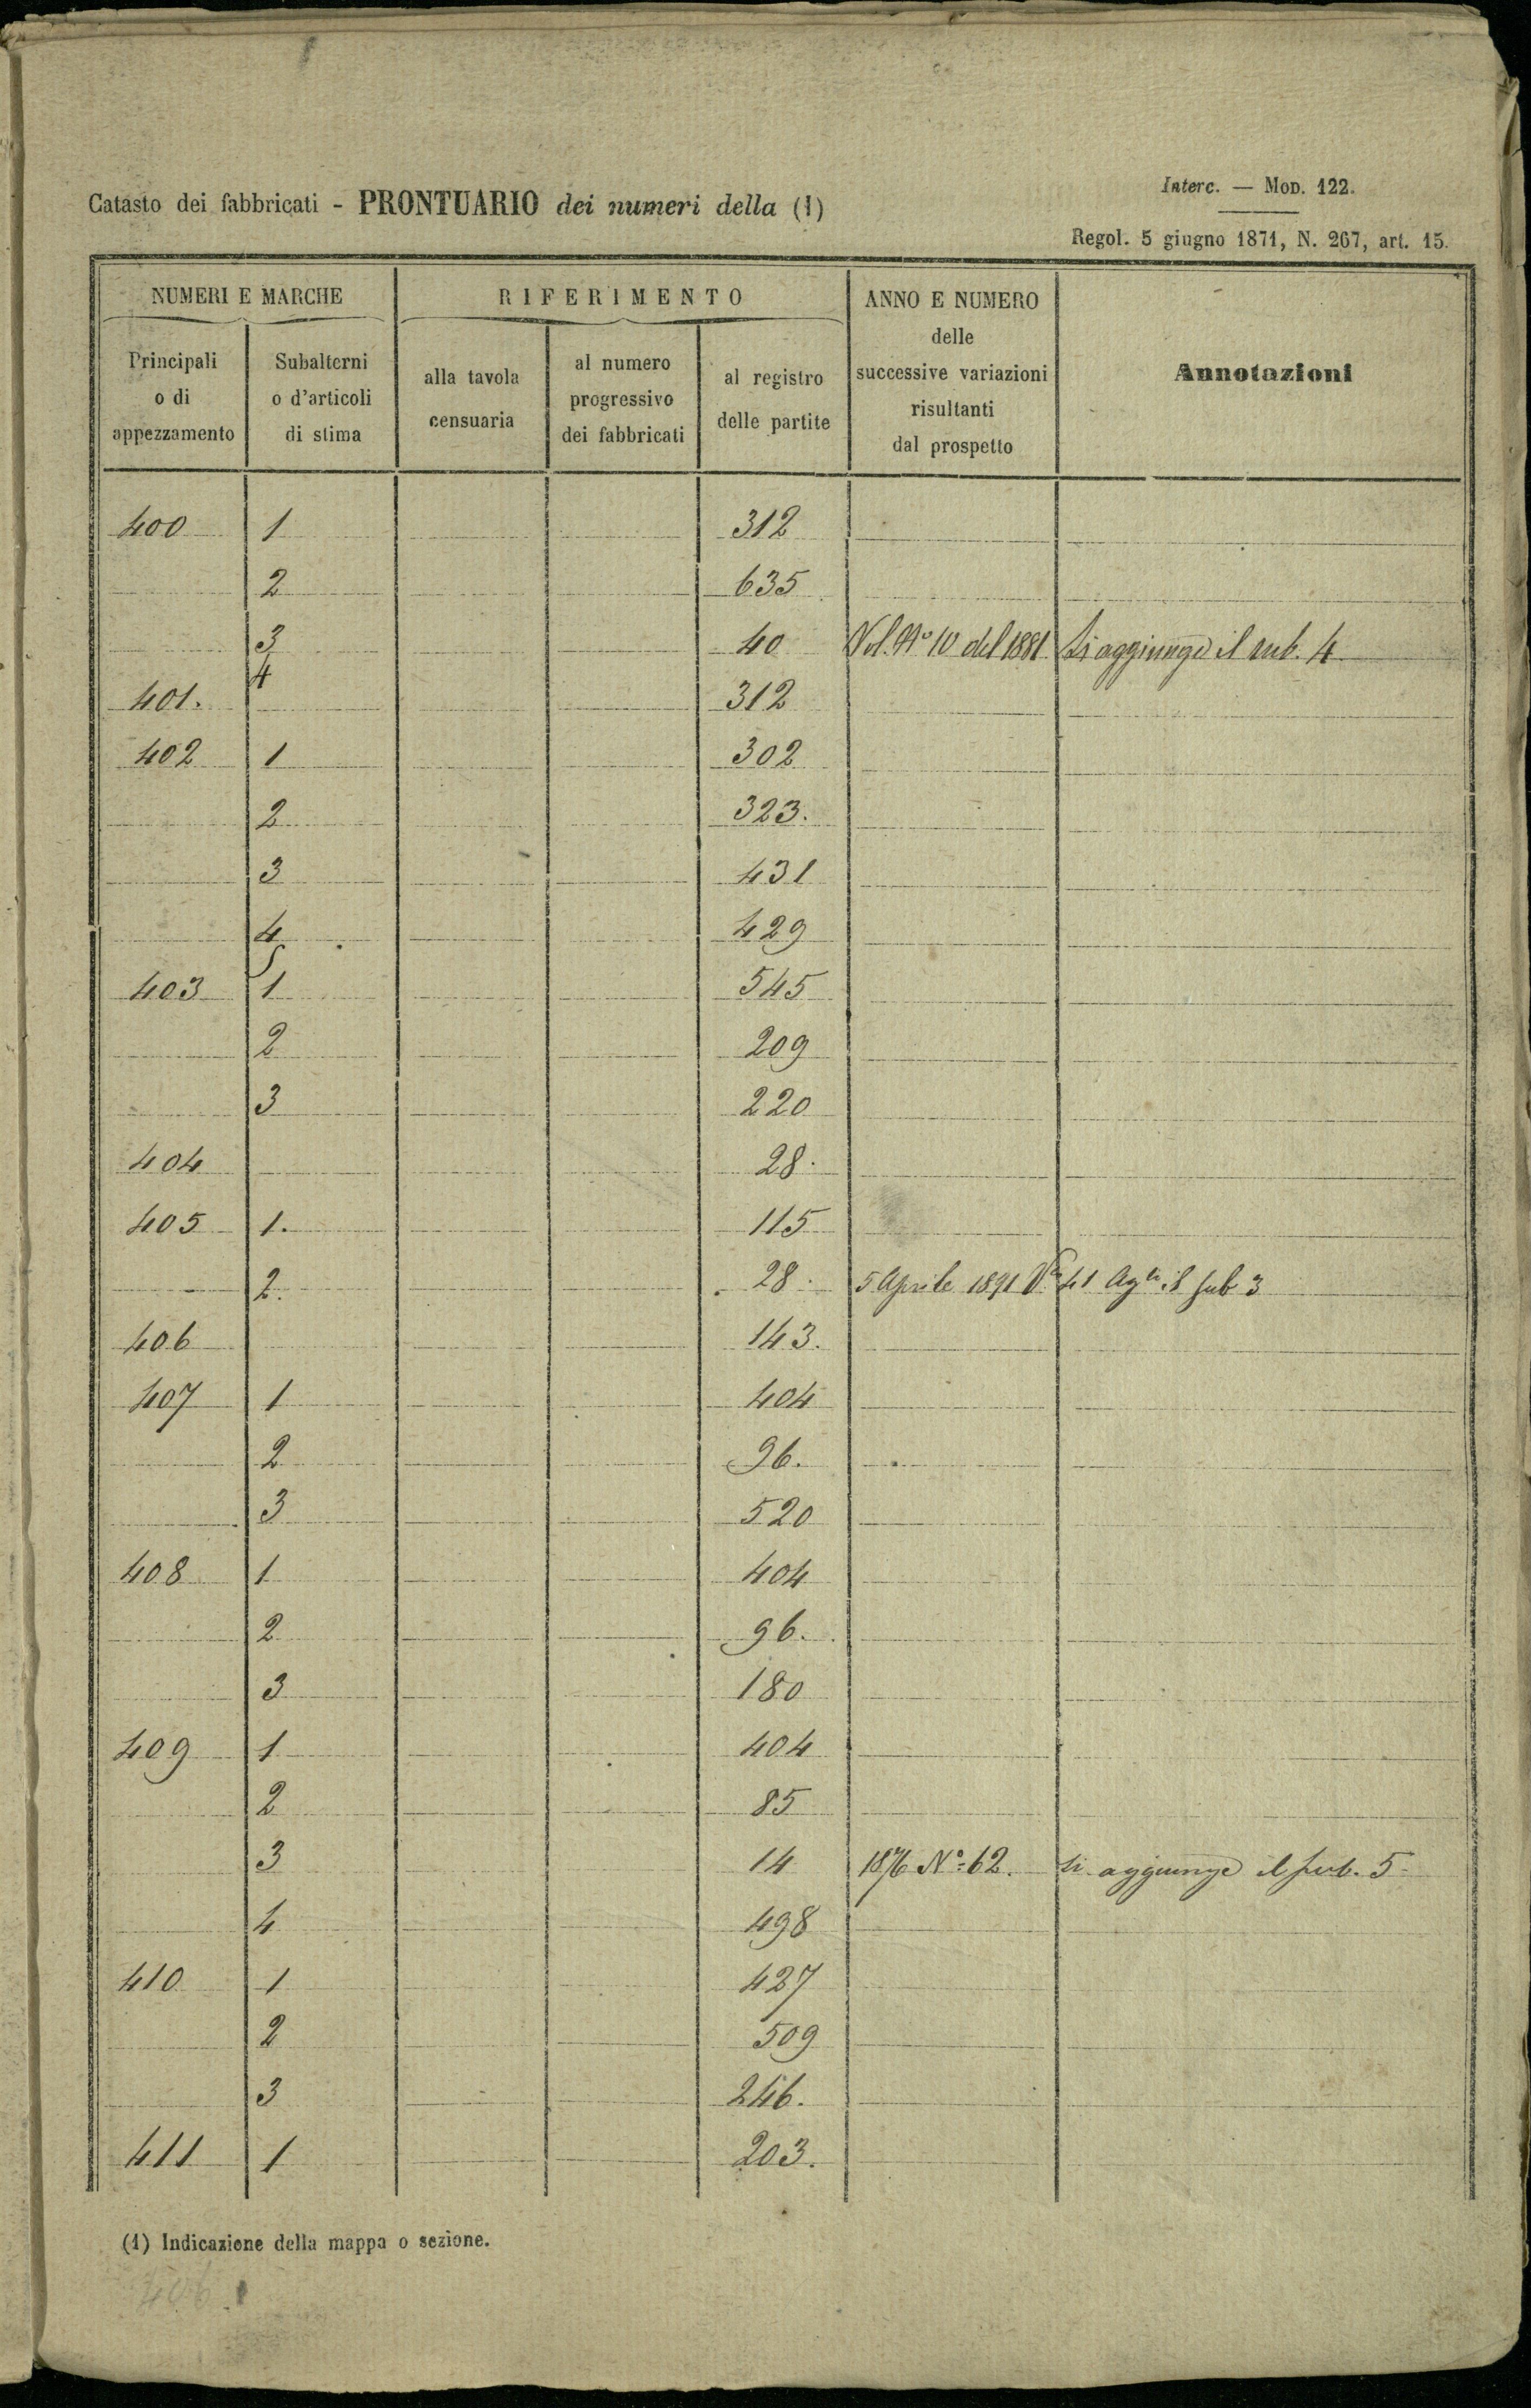 Interc. — Mod. 122.
Catasto dei fabbricati - PRONTUARIO dei numeri della (1)
Regol. 5 giugno 1871, N. 267, art. 15.
NUMERI E MARCHE RIFERIMENTO ANNO E NUMERO delle successive variazioni risultanti dal prospetto Annotazioni
Principali o di appezzamento Subalterni o d'articoli di stima alla tavola censuaria al numero progressivo dei fabbricati al registro delle partite
400 1 312
2 635
3 40 Vol. N° 10 del 1881 Si aggiunge il sub. 4
4
401. 312
402 1 302
2 323.
3 431
4 429
5
403 1 545
2 209
3 220
404 28.
405 1. 115
2. 28. 5 Aprile 1891 41 il sub 3
406 143.
407 1 404
2 96.
3 520
408 1 404
2 96.
3 180
409 1 404
2 85
3 14 1876 N°= 62. Si aggiunge il sub. 5
4 498
410 1 427
2 509
3 246.
411 1 203.
(1) Indicazione della mappa o sezione.
406